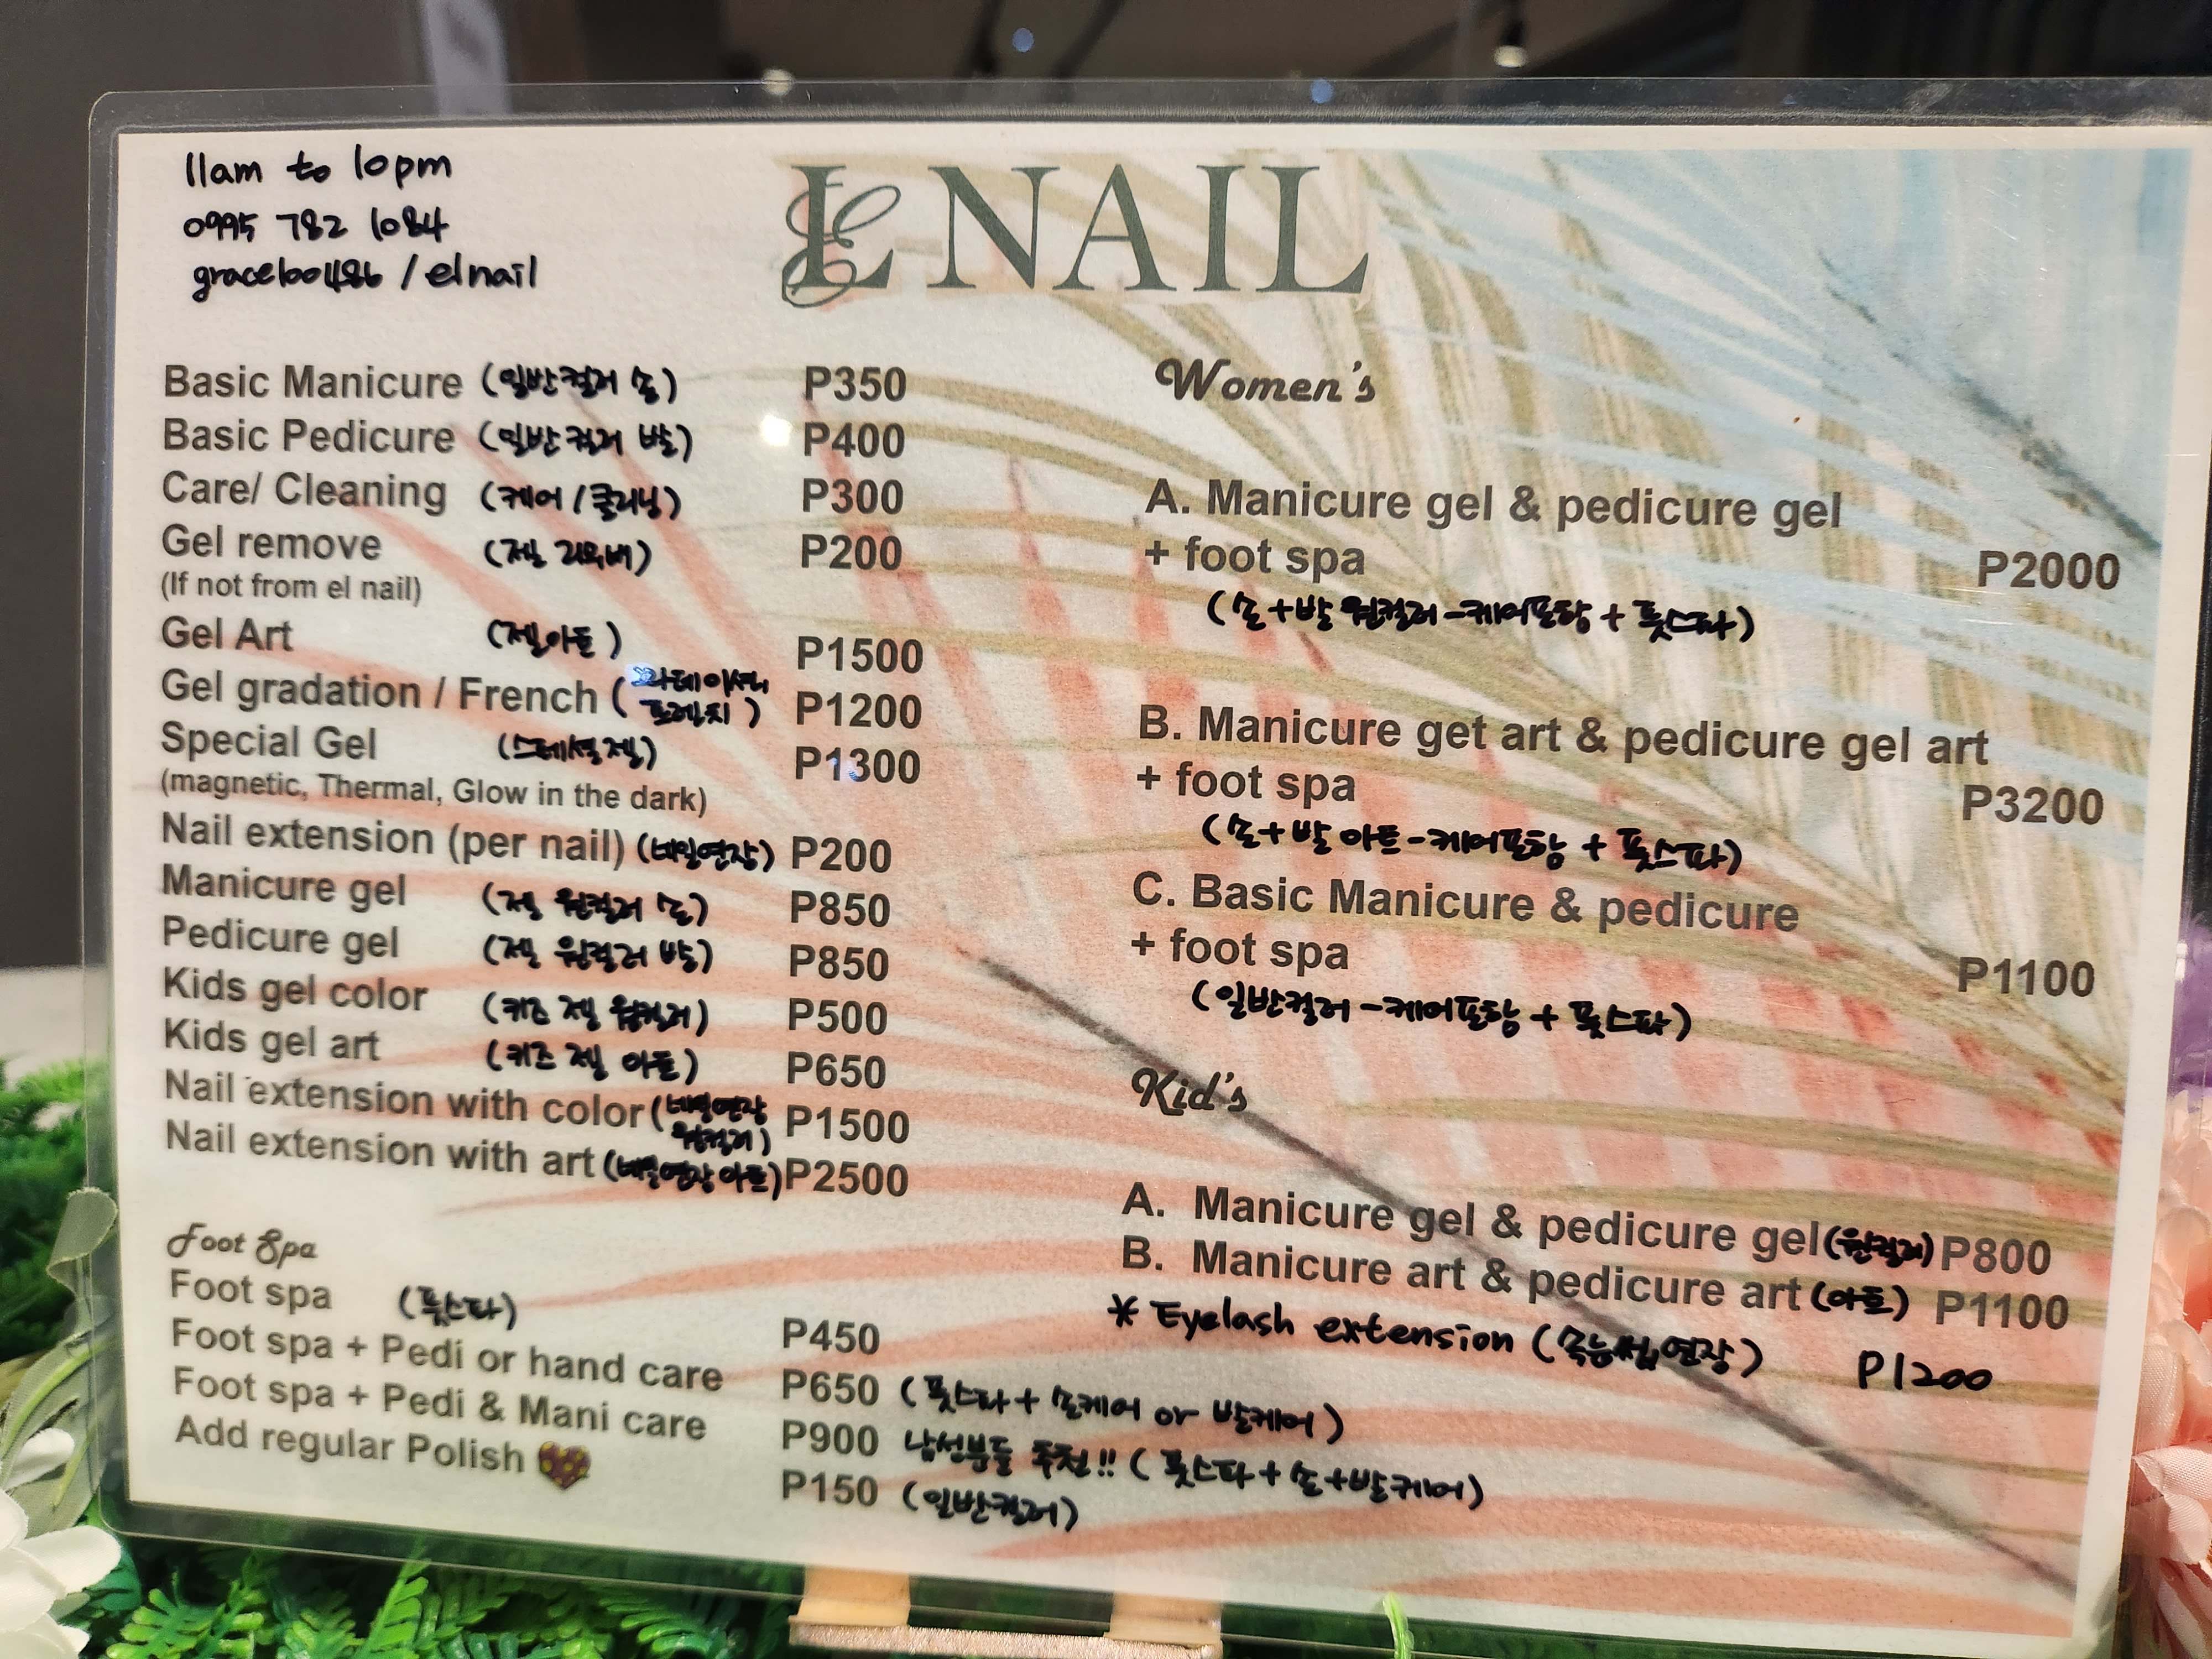 11am to 10pm
0995 782 1084
graceboo486 / elnail
EL NAIL
Basic Manicure (일반컬러 손) P350
Basic Pedicure (일반컬러 발) P400
Care/ Cleaning (케어/클리닝) P300
Gel remove (젤 리무버) P200
(If not from el nail)
Gel Art (젤아트) P1500
Gel gradation / French (그라데이션, P1200
프렌치)
Special Gel (스페셜젤) P1300
(magnetic, Thermal, Glow in the dark)
Nail extension (per nail) (네일연장) P200
Manicure gel (젤 원컬러 손) P850
Pedicure gel (젤 원컬러 발) P850
Kids gel color (키즈 젤 원컬러) P500
Kids gel art (키즈 젤 아트) P650
Nail extension with color (네일연장 P1500
원컬러)
Nail extension with art (네일연장 아트) P2500
Foot Spa
Foot spa (풋스파) P450
Foot spa + Pedi or hand care P650 (풋스파 + 손케어 or 발케어)
Foot spa + Pedi & Mani care P900 남성분들 추천!! (풋스파 + 손+발케어)
Add regular Polish P150 (일반컬러)
Women's
A. Manicure gel & pedicure gel
+ foot spa P2000
(손+발 원컬러-케어포함 + 풋스파)
B. Manicure get art & pedicure gel art
+ foot spa P3200
(손+발 아트-케어포함 + 풋스파)
C. Basic Manicure & pedicure
+ foot spa P1100
(일반컬러-케어포함 + 풋스파)
Kid's
A. Manicure gel & pedicure gel (원컬러) P800
B. Manicure art & pedicure art (아트) P1100
* Eyelash extension (속눈썹연장) P1200